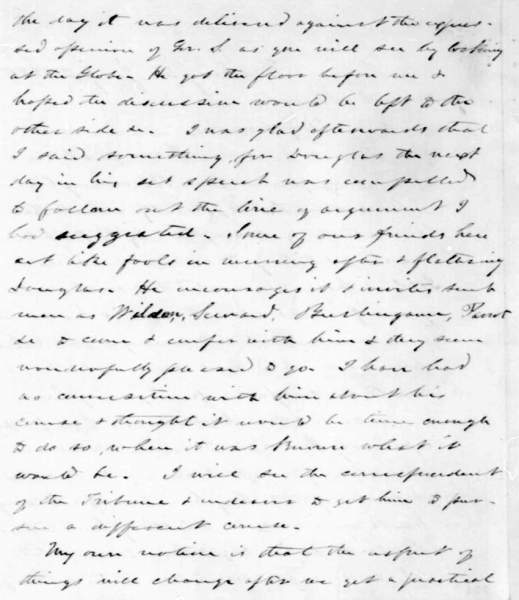 the day it was delivered against the expres-
sed opinion of Gov. S. as you will see by looking
at the Globe. He got the floor before me &
hoped the discussion would be left to the
other side &c. I was glad afterwards that
I said something, for Douglas the next
day in his set speech was compelled
to follow out the line of argument I
had suggested. Some of our friends here
act like fools in running after & flattering
Douglas. He encourages it & invites such
men as Wilson, Seward, Burlingame, Parrot
&c to come & confer with him & they seem
wonderfully pleased to go. I have had
no conversation with him about his
course & thought it would be time enough
to do so, when it was known what it
would be. I will see the correspondent
of the Tribune & endeavor to get him to pur-
sue a different course.
My own notion is that the aspect of
things will change after we get a practical